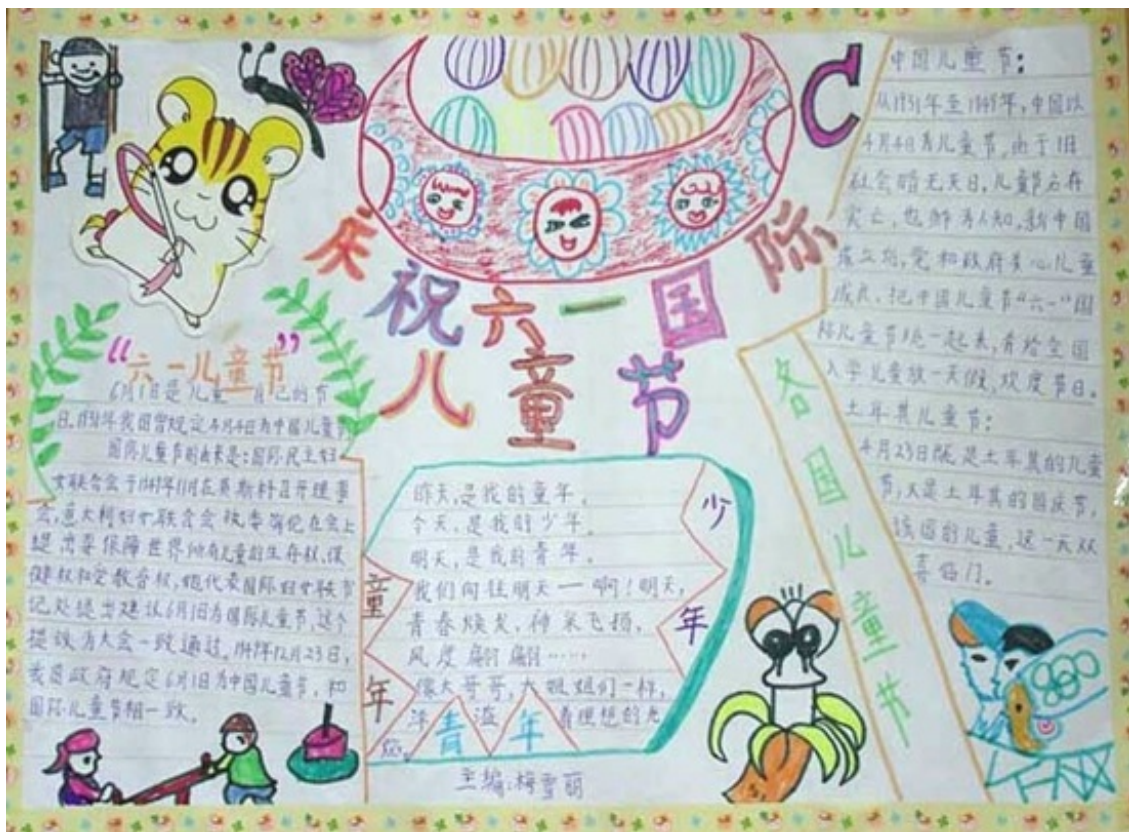 庆祝六一国际
儿童节
“六一儿童节”
6月1日是儿童自己的节
日，1931年我国曾规定4月4日为中国儿童节
国际儿童节的由来是：国际民主妇
女联合会于1949年11月在莫斯科召开理事
会，意大利妇女联合会执委书记在会上
提出要保障世界所有儿童的生存权、保
健权和受教育权，她代表国际妇女联书
记处提出建议6月1日为国际儿童节，这个
提议为大会一致通过。1949年12月23日，
我国政府规定6月1日为中国儿童节，和
国际儿童节相一致。
童年
少年
青年
昨天，是我的童年，
今天，是我的少年。
明天，是我的青年。
我们向往明天一啊！明天，
青春焕发，神采飞扬，
风度翩翩……
像大哥哥，大姐姐们一样，
洋溢着理想的光
主编：梅雪丽
各国儿童节
中国儿童节：
从1931年至1949年，中国以
4月4日为儿童节，由于旧
社会暗无天日，儿童节名存
实亡，也鲜为人知，新中国
成立后，党和政府关心儿童
成长，把中国儿童节“六一”国
际儿童节统一起来，并给全国
入学儿童放一天假，欢度节日。
土耳其儿童节：
4月23日既是土耳其的儿童
节，又是土耳其的国庆节，
该国的儿童，这一天双
喜临门。
C